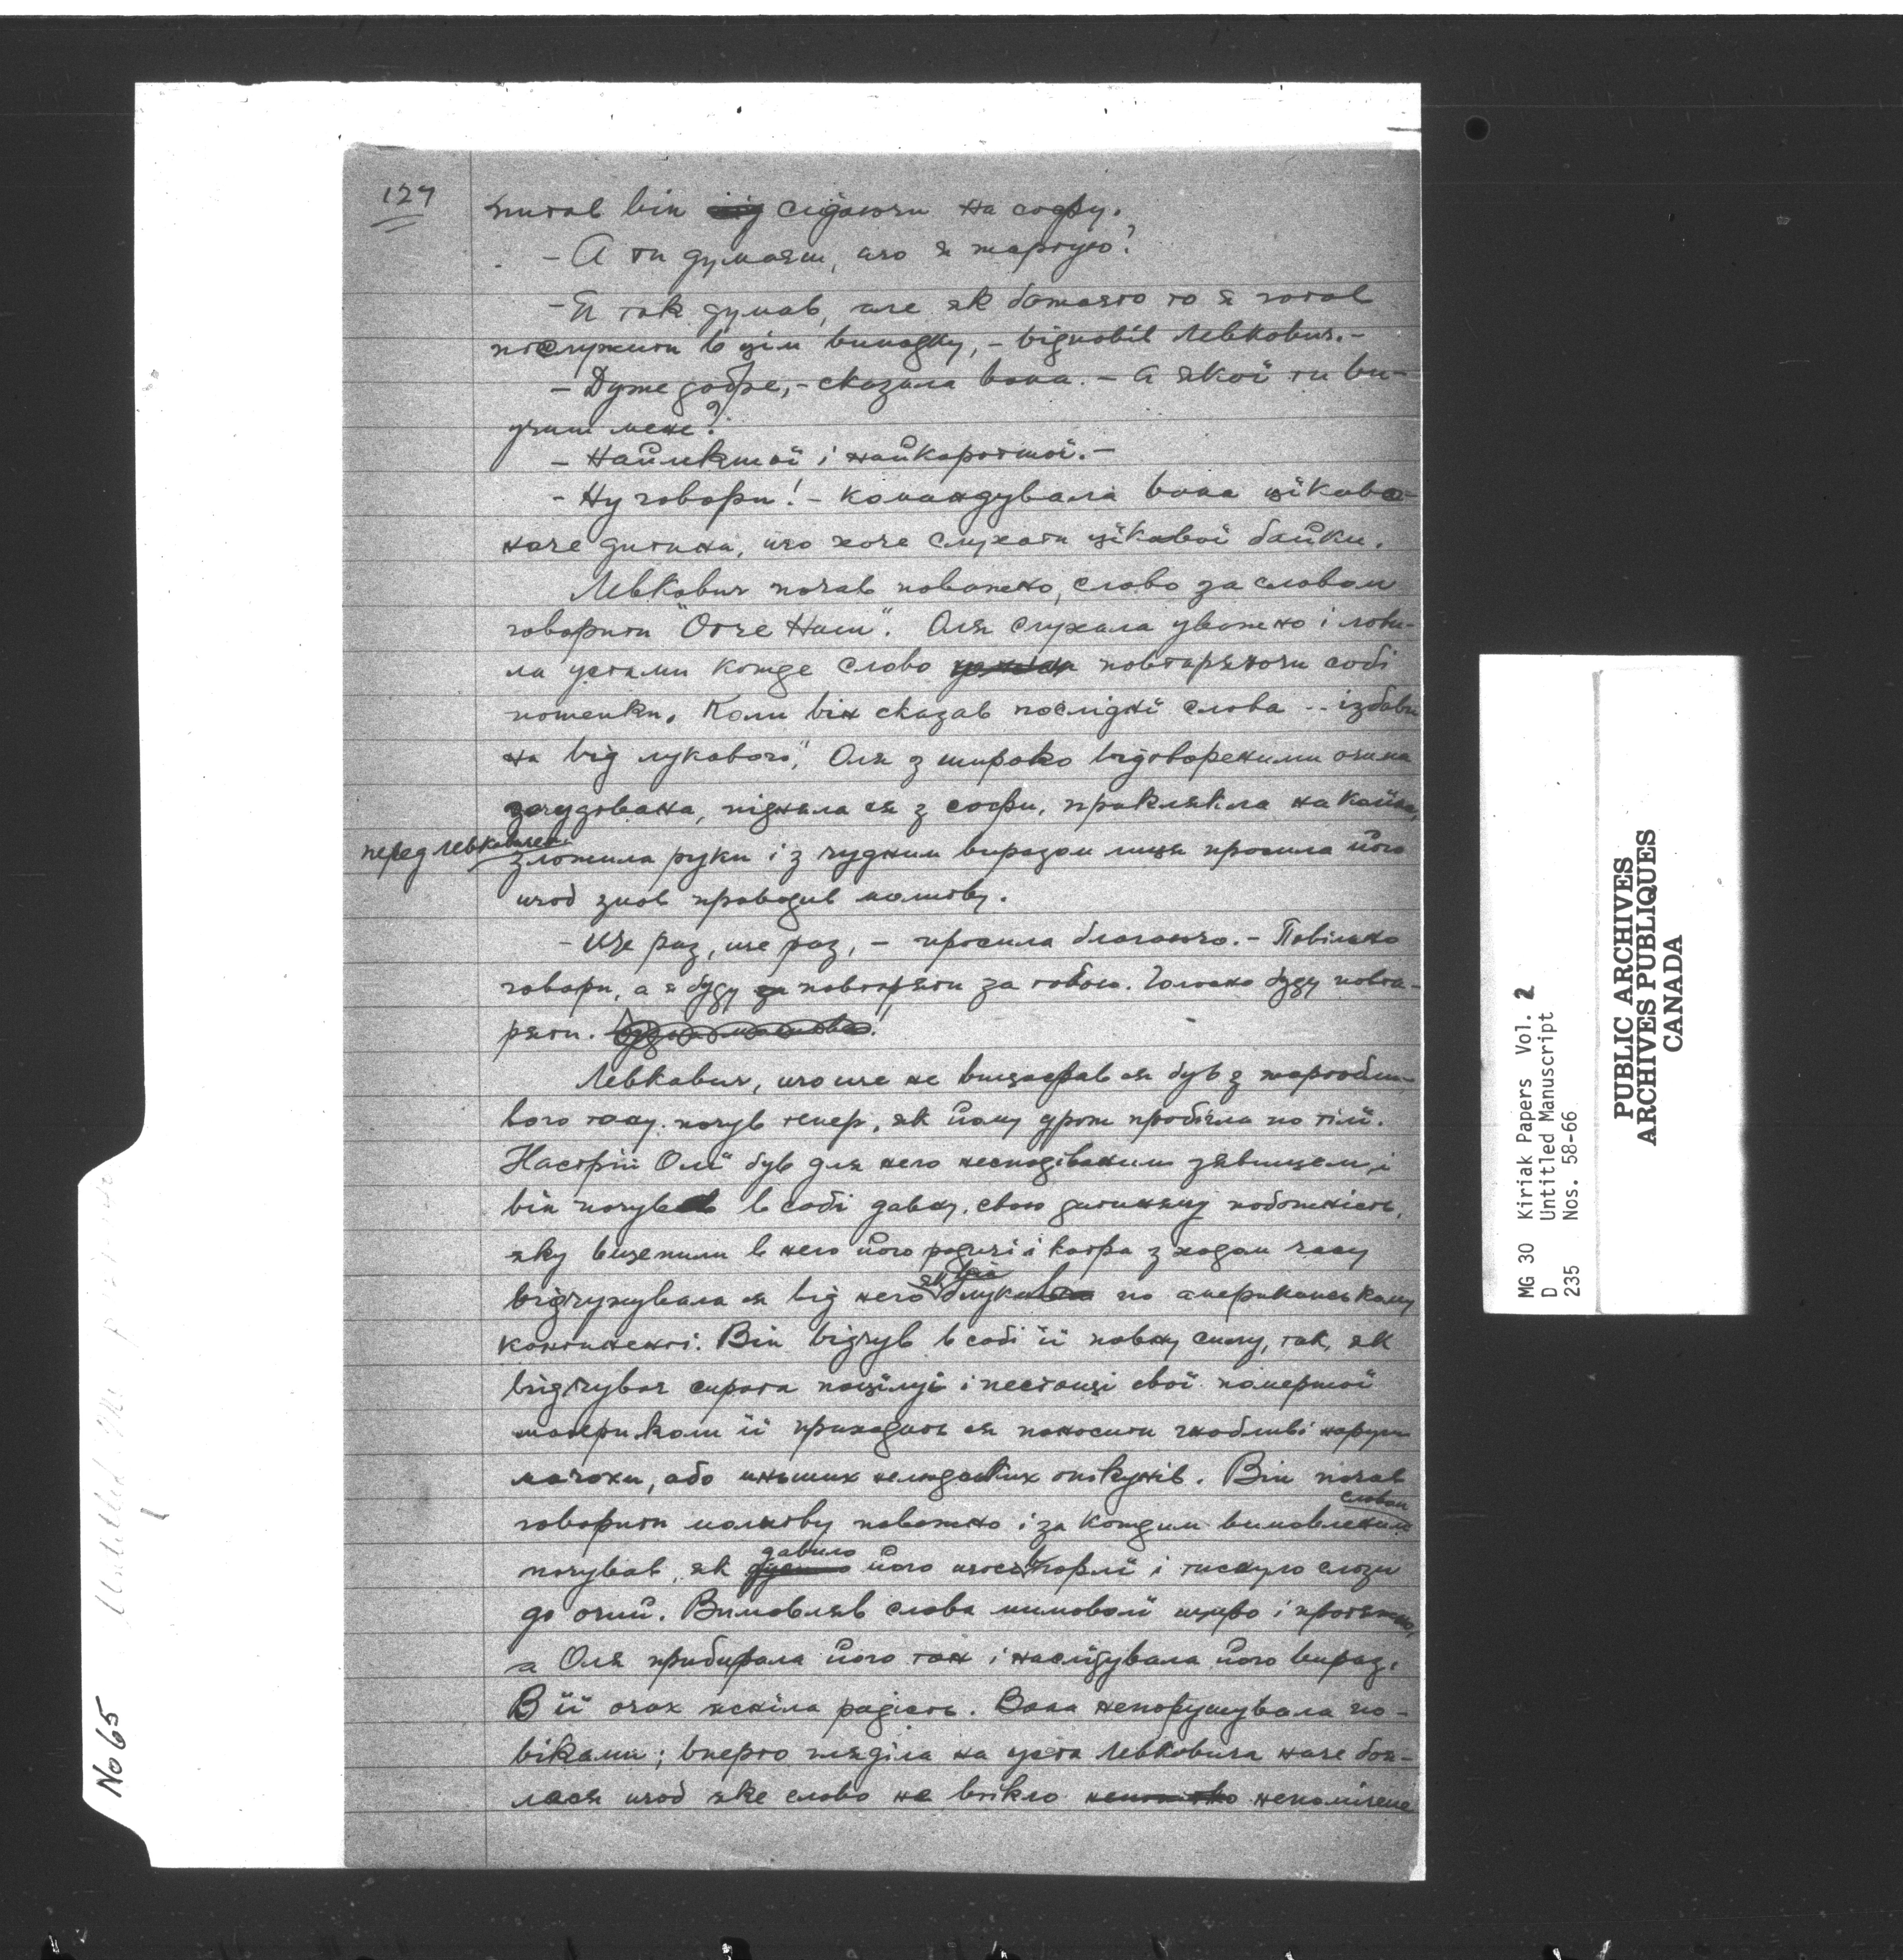 127
питав він сідаючи на софу.
- А ти думаєш, що я жартую?
- Я так думав, але як бажаєто то я готов
послужити в цім випадку, - відповів Левкович. -
- Дуже добре, - сказала вона. - А якої ти ви-
учиш мене?
- Найлекшої і найкоротшої. -
- Ну говори! - командувала вона цікаво
наче дитина, що хоче слухати цікавої байки.
Левкович почав поважно, слово за словом
говорити "Отче Наш". Оля слухала уважно і лови-
ла устами кожде слово повтаряючи собі
потенки. Коли він сказав послідні слова -- ізбави
на від лукавого," Оля з широко відтвореними очима
зачудована, підняла ся з софи, приклякла на коліна,
перед Левковичем
зложила руки і з чудним виразом лиця просила його
щоб знов проводив молитву.
- Ще раз, ще раз, - просила благаючо. - Повільно
говори, а я буду повтаряти за тобою. Голосно буду повта-
ряти.
Левкович, що ще не вицофав ся був з жартобли-
вого тону, почув тепер, як йому дрож пробігла по тілі.
Настрій Олї був для него несподіваним зявищем, і
він почув в собі давну, свою дитинячу побожність,
яку вщепили в него його родичі і котра з ходом часу
відчужувала ся від него як він блукав по американському
континенті. Він відчув в собі її повну силу, так, як
відчуває сирота поцілуї і пестощі свої помершої
матери коли її приходить ся поносити гнобливі наруги
мачохи, або иньших нелюдських опікунів. Він почав
говорити молитву поважно і за кождим вимовленим
словом
почував, як давило його щось в горлї і тиснуло сльози
до очий. Вимовляв слова мимоволї щиро і протяжно,
а Оля прибирала його тон і наслідувала його вираз.
В її очах ясніла радість. Вона непорушувала по-
віками; вперто гляділа на уста Левковича наче боя-
лася щоб яке слово не втікло непомічене
No 65
MG 30 Kiriak Papers Vol. 2
D Untitled Manuscript
235 Nos. 58-66
PUBLIC ARCHIVES
ARCHIVES PUBLIQUES
CANADA